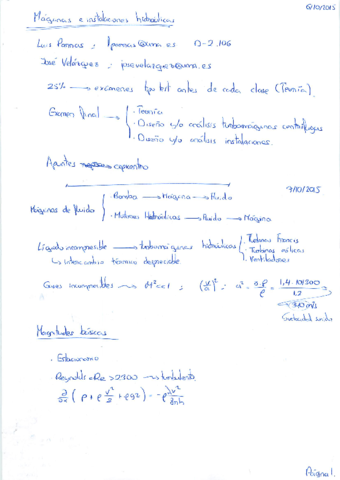 6/10/2015
Máquinas e instalaciones hidráulicas
Luis Parras ; lparras@uma.es D-2.106
José Velázquez ; jose.velazquez@uma.es
25% → exámenes tipo test antes de cada clase (Teoría).
Examen Final → · Teoría
· Diseño y/o análisis turbomáquinas centrífugas
· Diseño y/o análisis instalaciones.
Apuntes copisentro
7/10/2015
Máquinas de fluido · Bombas → Máquina → Fluido
· Motores Hidráulicas → Fluido → Máquina
Líquido incompresible → turbomáquinas hidráulicas · Turbinas Francis
· Turbinas eólicas
· Ventiladores
↳ intercambio térmico despreciable
Gases incompresibles → M²<<1 ; (v/a)² ; a² = γ·P/ρ = 1,4·101300/1,2
340 m/s
Sonido del sonido
Magnitudes básicas
· Estacionario
Reynolds → Re > 2300 → turbulento
∂/∂x (p + ρ v²/2 + ρgz) = -ρ λv²/8rh
Página 1